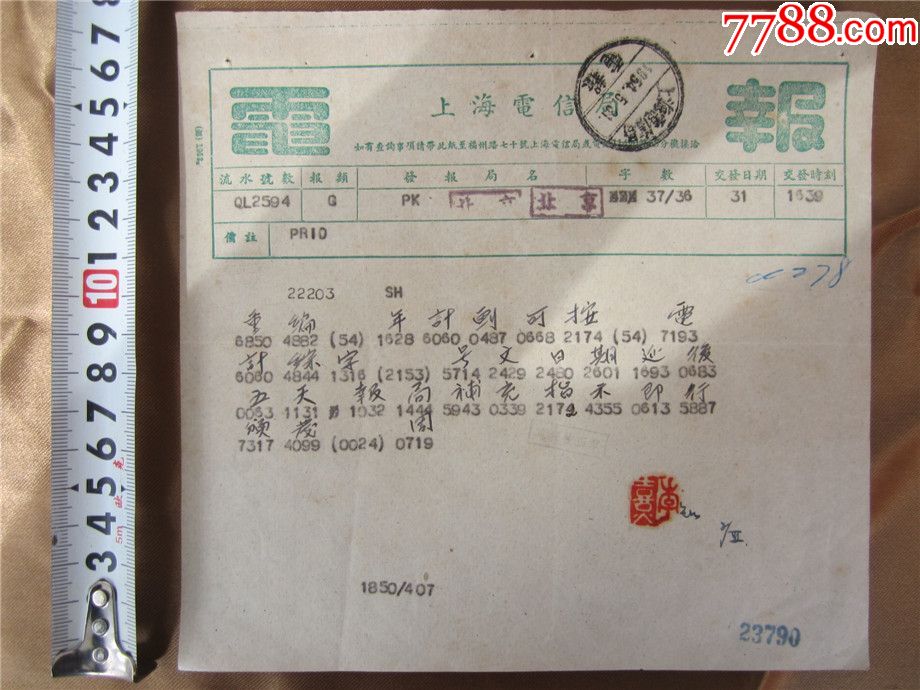 7788.com
電 上海電信局 報
如有查詢事項請帶此紙至福州路七十號上海電信局
流水號數 報類 發報局名 字數 交發日期 交發時刻
QL2594 G PK 北京 37/36 31 1639
備註 PRIO
22203 SH
重編 年計劃可按 電
6850 4882 (54) 1628 6060 0487 0668 2174 (54) 7193
計綜字 号文日期延後
6060 4844 1316 (2153) 5714 2429 2480 2601 1693 0683
五天 報局補充指示即行
0063 1131 1032 1444 5943 0339 2172 4355 0613 5887
頒發 周
7317 4099 (0024) 0719
1850/407
23790